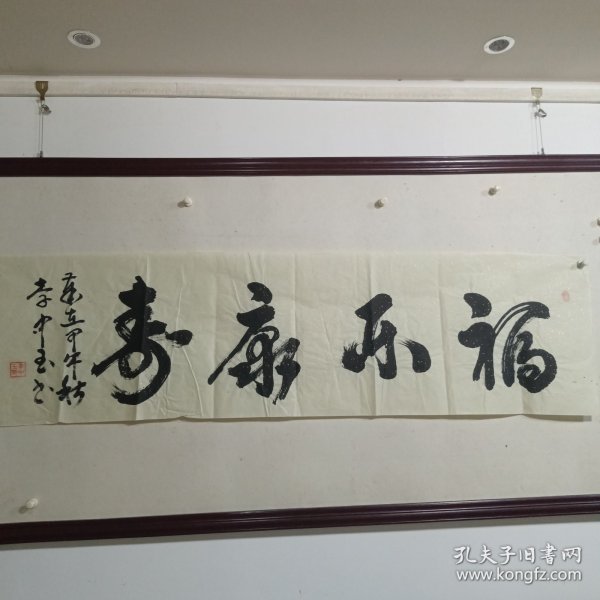 福乐康寿
甲午秋
中玉书
孔夫子旧书网
www.kongfz.com